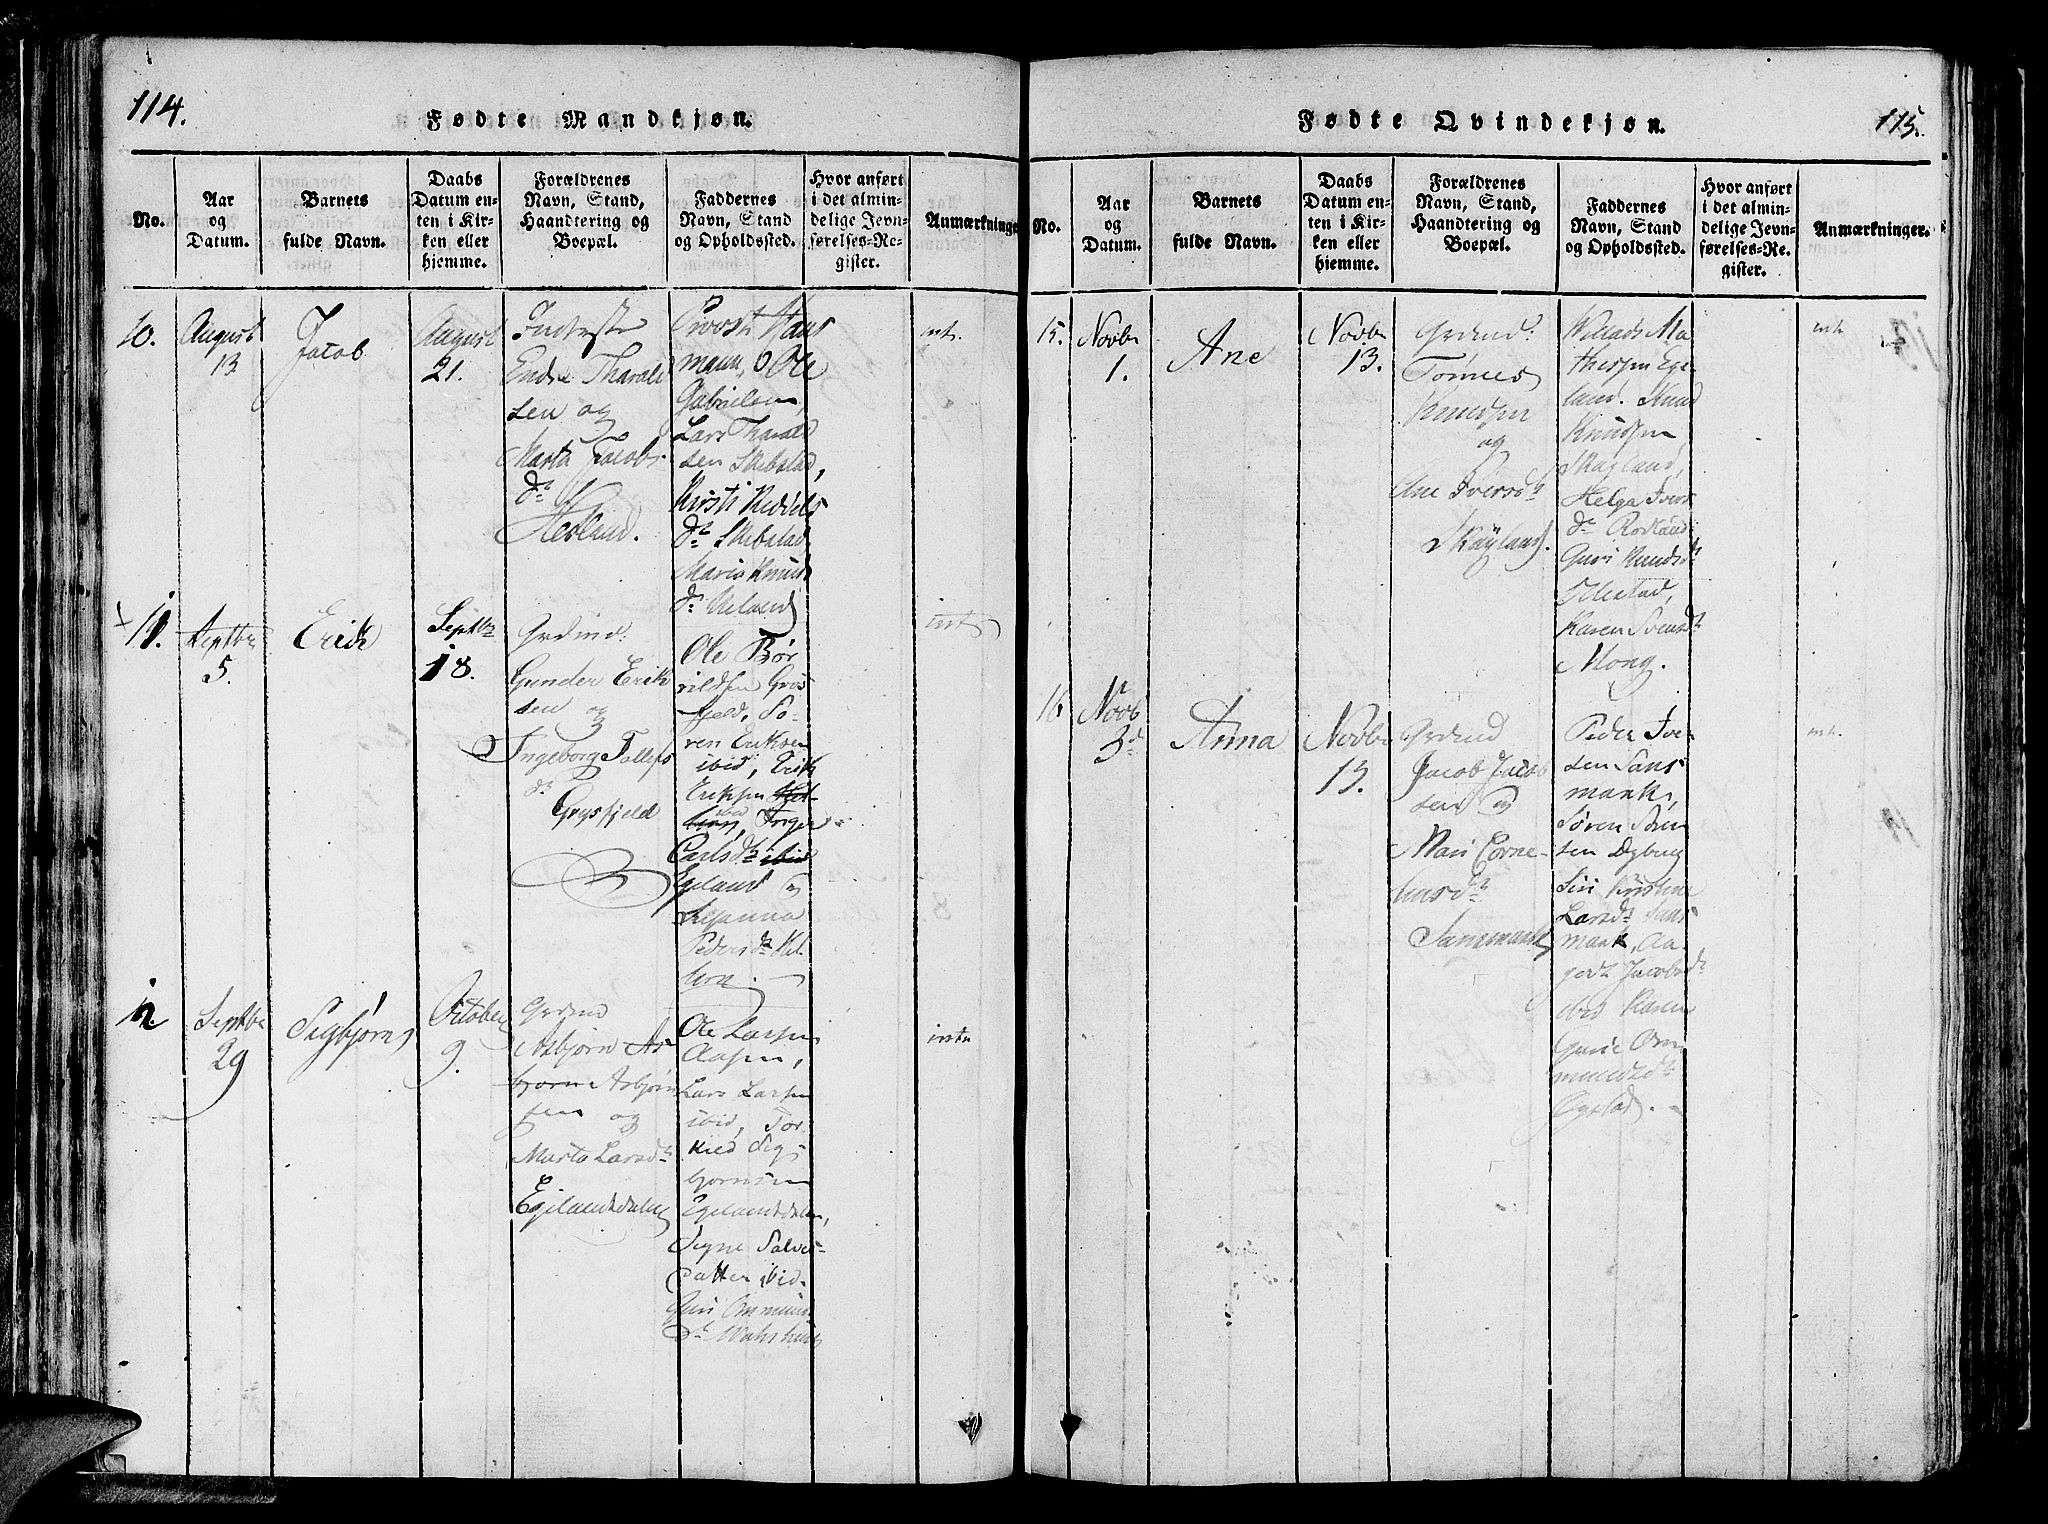 114.
Fødte Mandkjøn.
No.
Aar
og
Datum.
Barnets
fulde Navn.
Daabs
Datum en-
ten i Kir-
ken eller
hjemme.
Forældrenes
Navn, Stand,
Haandtering og
Boepæl.
Faddernes
Navn, Stand
og Opholdssted.
Hvor anført
i det almin-
delige Jevn-
førelses-Re-
gister.
Anmærkninger
10.
August
13
Jacob
August
21.
Endre Tharald
sen og
Marta Jacobs
dr
Hesland.
Provst Haus
mann, Ole
Gabrielsen,
Lars Tharald
sen Skibstad,
Kirsti
dr Skibstad
Maria Knuds
dr
int.
11.
Septbr
5.
Erick
Septbr
18.
Grdmd.
Gunder Erik
sen og
Ingeborg Tollefs
dr
Grysfjeld
Ole Bør
rildsen Gros
fjeld, So-
ren Eriksen
ibid, Erik
Eriksen
ibid, Inger
Carlsdr ibid
Egeland og
Susanna
Pedersdr Hel
leren.
int
12
Septbr
29
Sigbjørn
October
9.
Grdmd
Asbjørn As
bjorn Asbjørn
sen og
Marta Larsdr
Egelandsdalen
Ole Larsen
Aasen,
Lars Larsen
ibid, Tor
kied Sig
bjornsen
Egelandsdalen,
Signe Salves
datter ibid.
Guri Ommunds
dr
int
Fødte Qvindekjøn.
115.
No.
Aar
og
Datum.
Barnets
fulde Navn.
Daabs
Datum en-
ten i Kir-
ken eller
hjemme.
Forældrenes
Navn, Stand,
Haandtering og
Boepæl.
Faddernes
Navn, Stand
og Opholdssted.
Hvor anført
i det almin-
delige Jevn-
førelses-Re-
gister.
Anmærkninger.
15.
Novbr
1.
Ane
Novbr
13.
Grdmd.
Tønnes
Knudsen
og
Ane Iversdr
Skayland.
Willads Ma
thiesen Ege-
land. Knud
Knudsen
Skagland,
Helga Ivers
dr Rodland
Guri Knudsdr
Karen Svensdr
Mong.
int.
16
Novb
3d
Anna
Novbr
13.
Grdmd
Jacob Jacob
sen og
Mari Corne-
liusdr
Sannemark
Peder Ive-
sen Sans
mark,
Søren Sørn
sen Dybing
Siri Kirstine
Larsdr Sans
mark, Aa-
godt Jacobsdr
ibid Karen
Gurie Om
mundsdr
Ogstad.
int.